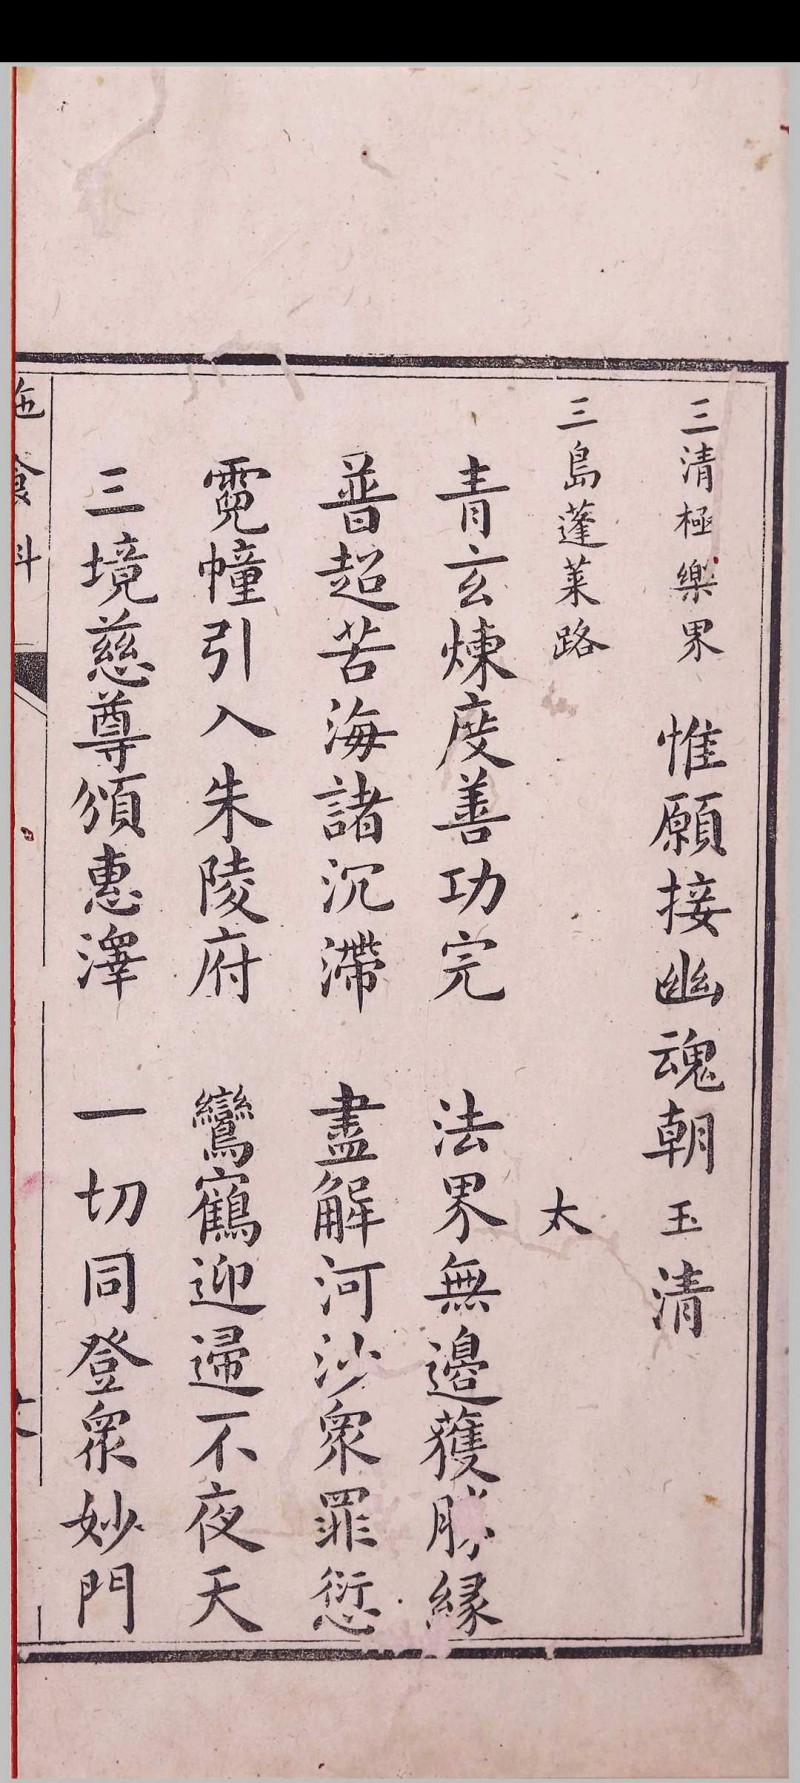 三清極樂界　惟願接幽魂朝玉清
三島蓬萊路　太
青玄煉度善功完　法界無邊獲勝緣
普超苦海諸沉滯　盡解河沙衆罪愆
霓幢引入朱陵府　鸞鶴迎歸不夜天
三境慈尊頒惠澤　一切同登衆妙門
施食科